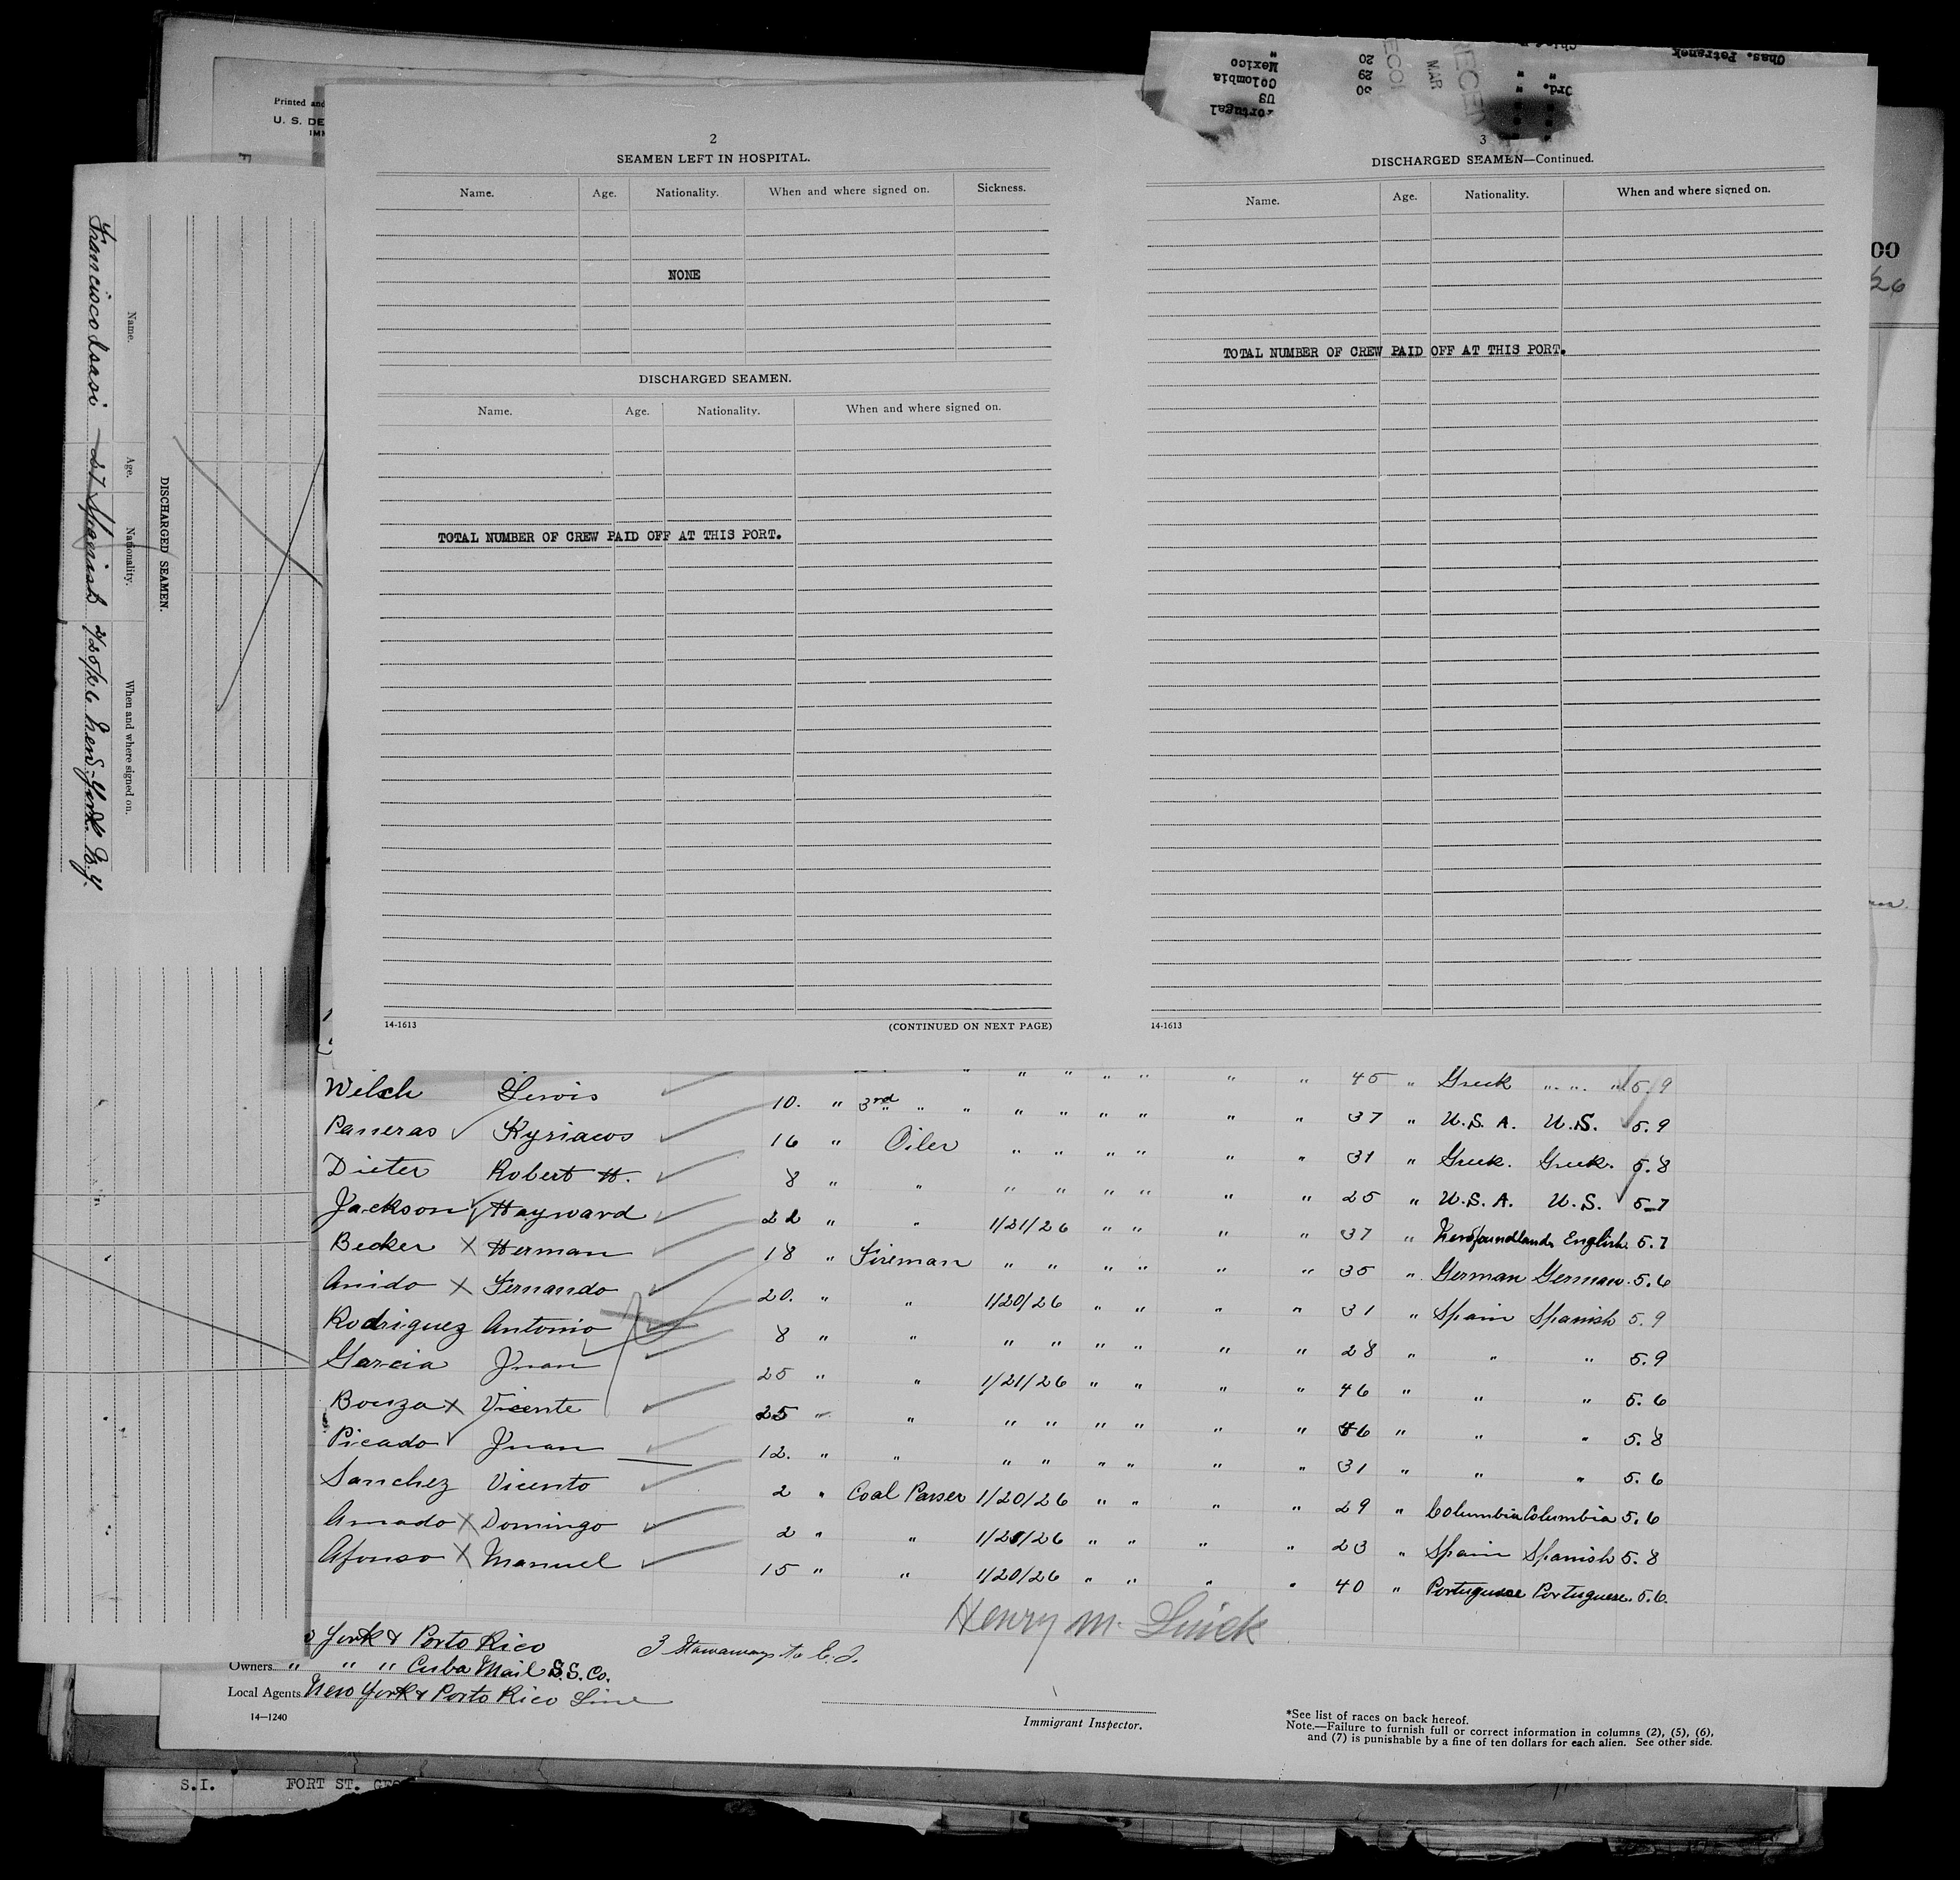 Printed and
U. S. DE
2
SEAMEN LEFT IN HOSPITAL.
Name. Age. Nationality. When and where signed on. Sickness.
NONE
DISCHARGED SEAMEN.
Name. Age. Nationality. When and where signed on.
TOTAL NUMBER OF CREW PAID OFF AT THIS PORT.
14-1613 (CONTINUED ON NEXT PAGE)
Chas. Petranek
20 Mexico "
29 Colombia
30 US
Portugal
Ord.
MAR
3
DISCHARGED SEAMEN—Continued.
Name. Age. Nationality. When and where signed on.
TOTAL NUMBER OF CREW PAID OFF AT THIS PORT.
14-1613
00
26
DISCHARGED SEAMEN.
Name. Age. Nationality. When and where signed on.
Francisco 27 Spanish 2/25/26 New-York. N.Y.
" " " " " " 45 " Greek " " " 5.9
Welsch Lewis 10. " 3rd " " " " " " " " 37 " U.S.A. U.S. 5.9
Paneras Kyriacos 16 " Oiler " " " " " " 31 " Greek. Greek. 5.8
Dieter Robert H. 8 " " " " " " " " 25 " U.S.A. U.S. 5-7
Jackson Hayward 22 " " 1/21/26 " " " " 37 " Newfoundland English. 5.7
Becker X Herman 18 " Fireman " " " " " " 35 " German German. 5.6
Anido X Fernando 20. " " 1/20/26 " " " " 31 " Spain Spanish 5.9
Rodriguez Antonio 8 " " " " " " " " 28 " " " 5.9
Garcia Juan 25 " " 1/21/26 " " " " 46 " " " 5.6
Bouza X Vicente 25 " " " " " " " " 46 " " " 5.8
Picado Juan 12. " " " " " " " " 31 " " " 5.6
Sanchez Vicento 2 " Coal Passer 1/20/26 " " " " 29 " Columbia Columbia 5.6
Amado X Domingo 2 " " 1/21/26 " " " " 23 " Spain Spanish 5.8
Afonso X Manuel 15 " " 1/20/26 " " " " 40 " Portuguese Portuguese. 5.6.
Henry M.
York & Porto Rico 3 Stowaways to E.I.
Owners " " " Cuba Mail S.S. Co.
Local Agents New York & Porto Rico Line
14—1240
Immigrant Inspector.
*See list of races on back hereof.
Note.—Failure to furnish full or correct information in columns (2), (5), (6),
and (7) is punishable by a fine of ten dollars for each alien. See other side.
S.I. FORT ST.